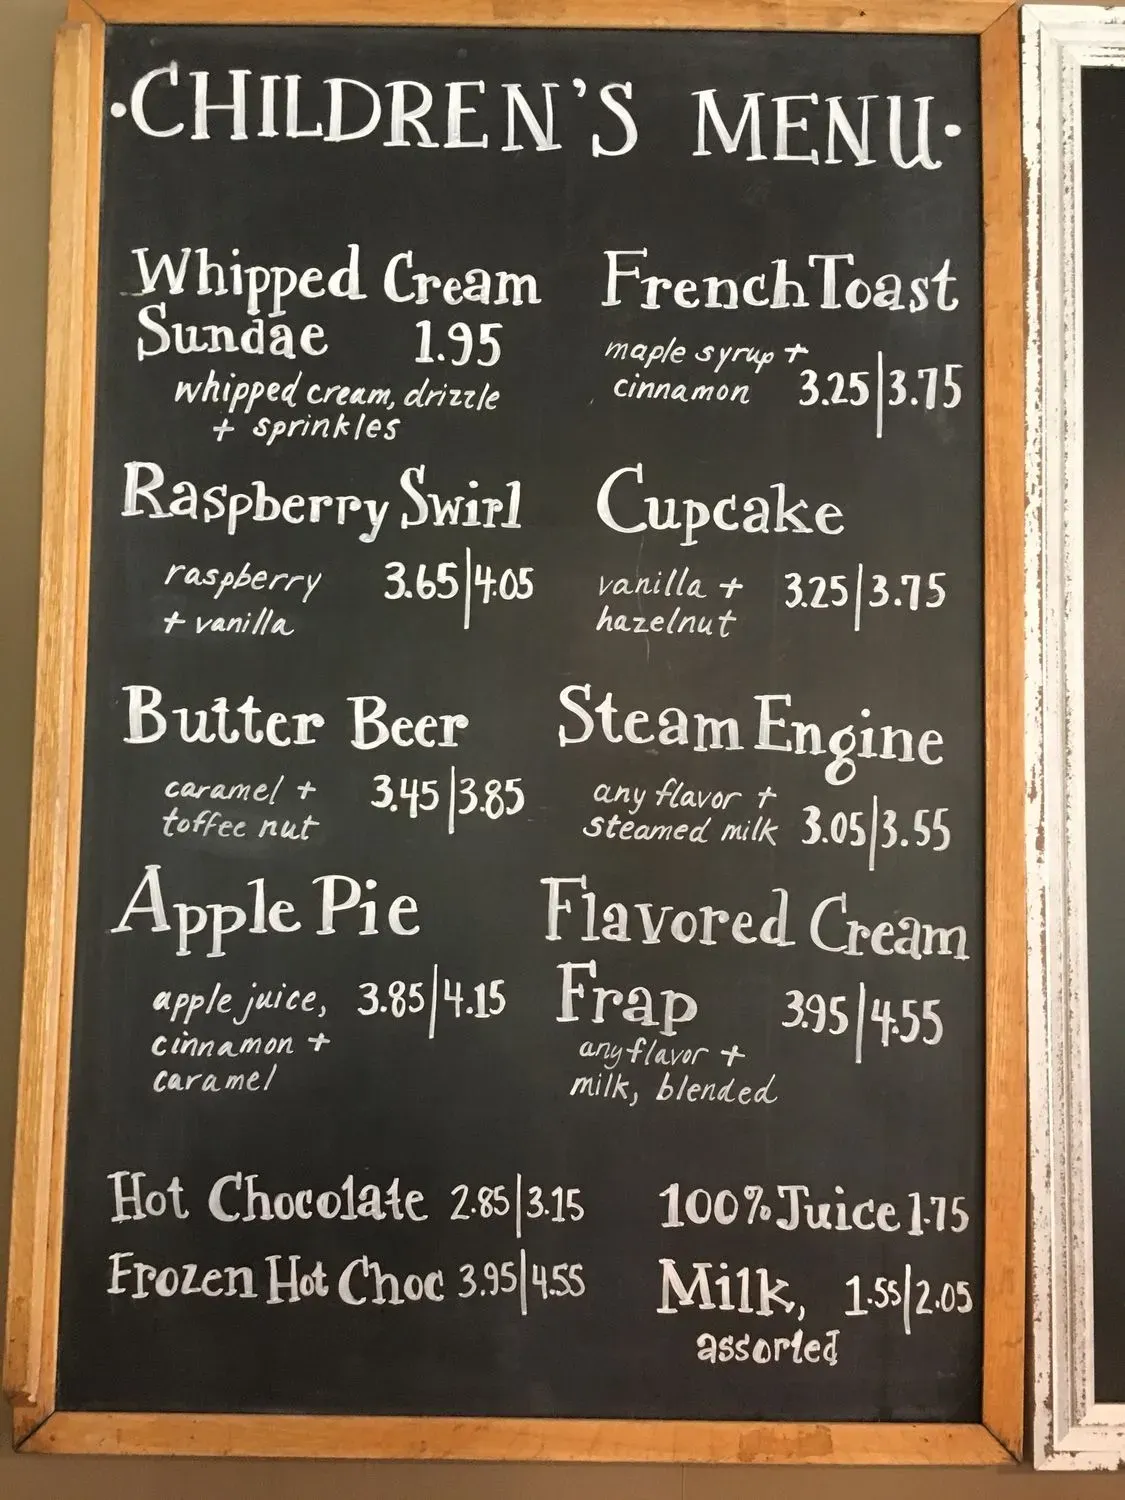 ·CHILDREN'S MENU·
Whipped Cream
Sundae 1.95
whipped cream, drizzle
+ sprinkles
Raspberry Swirl
raspberry 3.65|4.05
+ vanilla
Butter Beer
caramel + 3.45|3.85
toffee nut
Apple Pie
apple juice, 3.85|4.15
cinnamon +
caramel
French Toast
maple syrup +
cinnamon 3.25|3.75
Cupcake
vanilla + 3.25|3.75
hazelnut
Steam Engine
any flavor +
steamed milk 3.05|3.55
Flavored Cream
Frap 3.95|4.55
any flavor +
milk, blended
Hot Chocolate 2.85|3.15
Frozen Hot Choc 3.95|4.55
100% Juice 1.75
Milk, 1.55|2.05
assorted